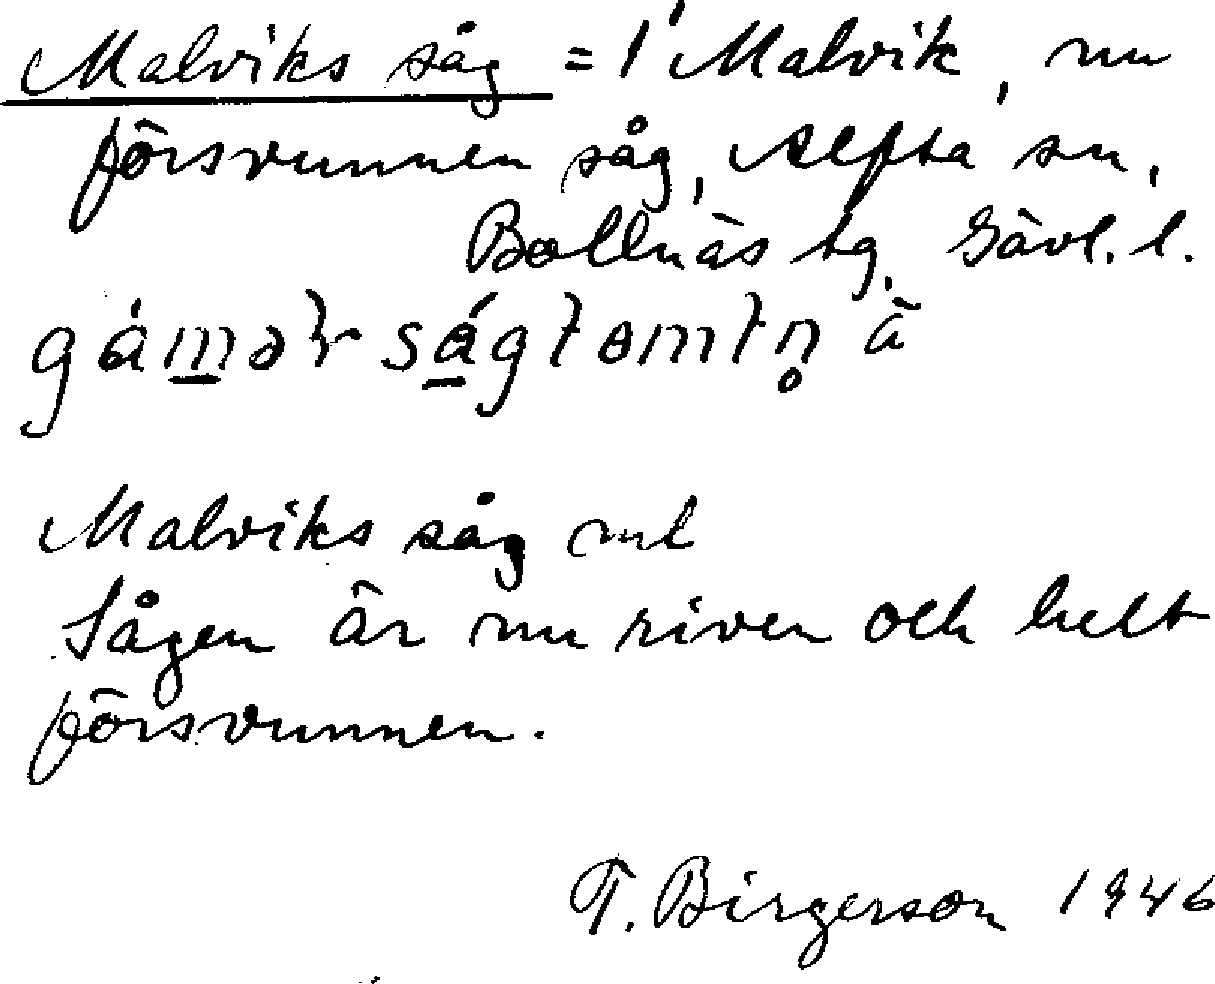 Malviks såg = 1 Malvik, nu
försvunnen såg, Alfta sn,
Bollnäs tg, Gävl. l.
Malviks såg ml
Sågen är nu riven och helt
försvunnen.
T. Birgerson 1946